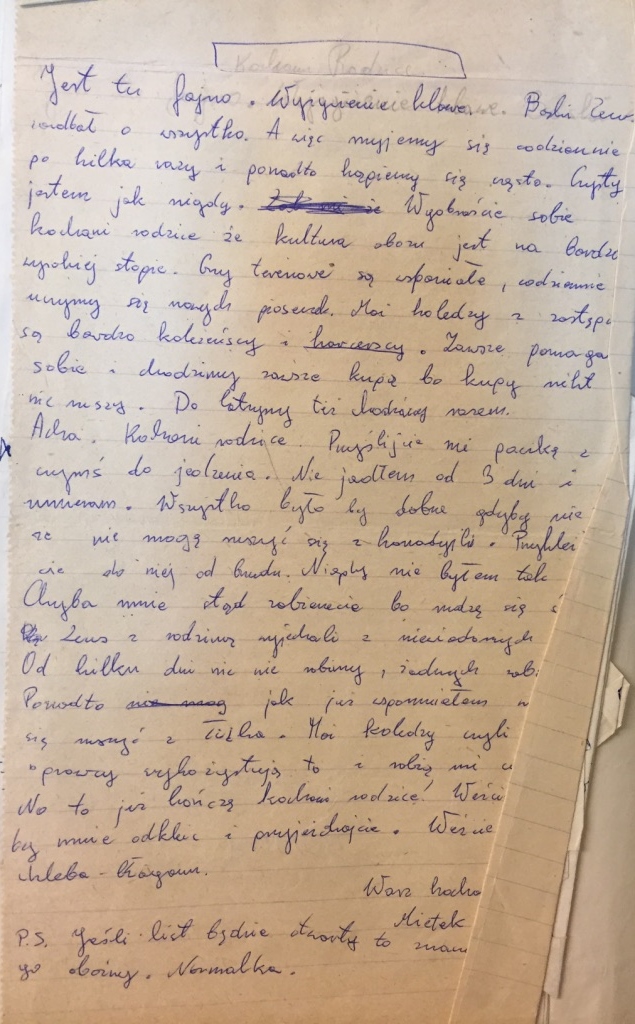 Kochani Rodzice
Jest tu fajno. Wyżywienie klawe. Boski Zeus
zadbał o wszystko. A więc myjemy się codziennie
po kilka razy i ponadto kąpiemy się często. Czysty
jestem jak nigdy. Wyobraźcie sobie
kochani rodzice że kultura obozu jest na bardzo
wysokiej stopie. Gry terenowe są wspaniałe, codziennie
uczymy się nowych piosenek. Moi koledzy z zastępu
są bardzo koleżeńscy i harcerscy. Zawsze pomaga
sobie i chodzimy zawsze kupą bo kupy nikt
nie ruszy. Do latryny też chodzimy razem.
Acha. Kochani rodzice. Przyślijcie mi paczkę z
czymś do jedzenia. Nie jadłem od 3 dni i
umieram. Wszystko było by dobrze gdyby nie
że nie mogę ruszyć się z kanadyjki. Przyklei
cie do niej od brudu. Nigdy nie byłem tak
Chyba mnie stąd zabierzecie bo nudzę się i
Zeus z rodziną wyjechali z niewiadomych
Od kilku dni nic nie robimy, żadnych
Ponadto nie mog jak już wspomniałem n
się ruszyć z łóżka. Moi koledzy czyli
oprawcy wykożystują to i robią mi
No to już kończę kochani rodzice! Weźci
by mnie odkleić i przyjeżdżajcie. Weźcie
chleba - błagam.
Wasz kocha
Mietek
P.S. Jeśli list będzie otwarty to znaczy
go oboźny. Normalka.